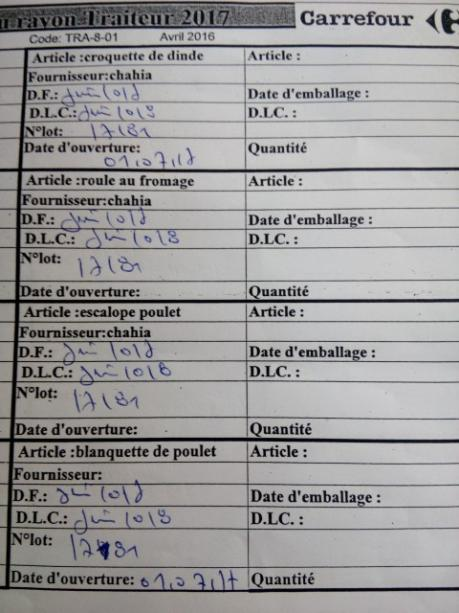 rayon Traiteur 2017 Carrefour
Code: TRA-8-01 Avril 2016
Article :croquette de dinde Article :
Fournisseur:chahia
D.F.: Date d'emballage :
D.L.C.: D.LC. :
N°lot: 17181
Date d'ouverture: Quantité
01.07.17
Article :roule au fromage Article :
Fournisseur:chahia
D.F.: Date d'emballage :
D.L.C.: D.LC. :
N°lot: 17181
Date d'ouverture: Quantité
Article :escalope poulet Article :
Fournisseur:chahia
D.F.: Date d'emballage :
D.L.C.: D.LC. :
N°lot: 17181
Date d'ouverture: Quantité
Article :blanquette de poulet Article :
Fournisseur:
D.F.: Date d'emballage :
D.L.C.: D.LC. :
N°lot: 17181
Date d'ouverture: 01.07.17 Quantité